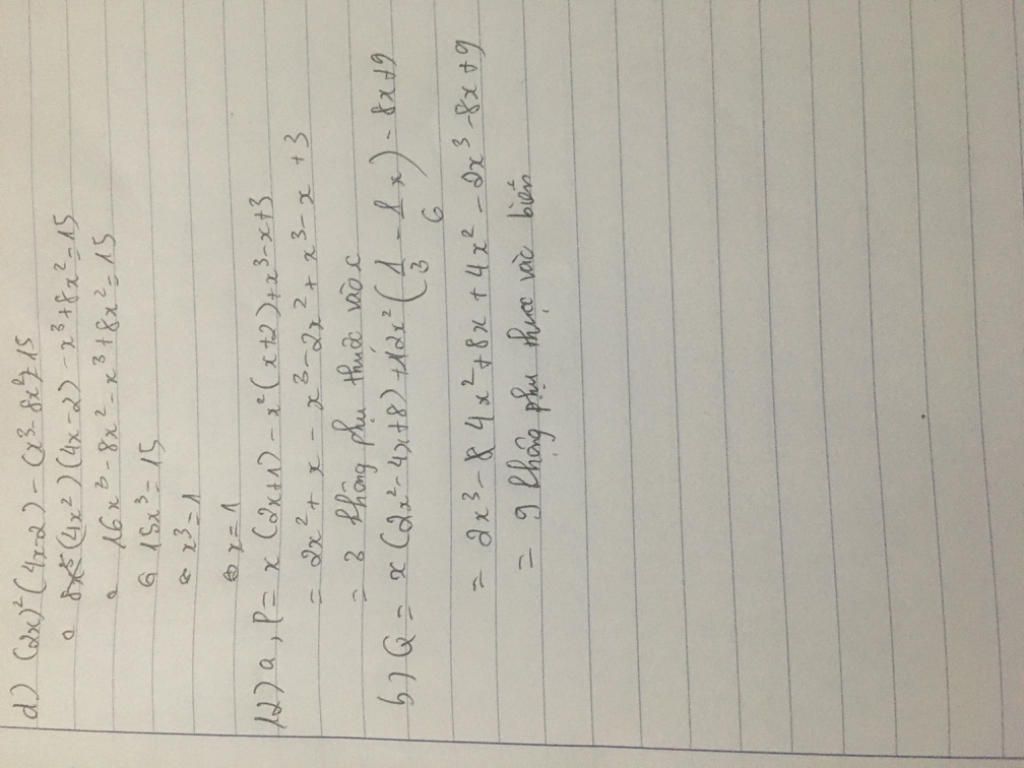 d) (2x)²(4x-2) - (x³-8x²)=15
(4x²)(4x-2) - x³+8x²=15
16x³-8x²-x³+8x²=15
15x³=15
x³=1
x=1
12) a, P= x(2x+1) - x²(x+2)+x³-x+3
= 2x²+x - x³-2x²+x³-x+3
= 3 không phụ thuộc vào x
b) Q = x(2x²-4x+8)+12x²(1/3 - 1/6 x) - 8x+9
= 2x³-8 4x²+8x+4x²-2x³-8x+9
= 9 không phụ thuộc vào biến